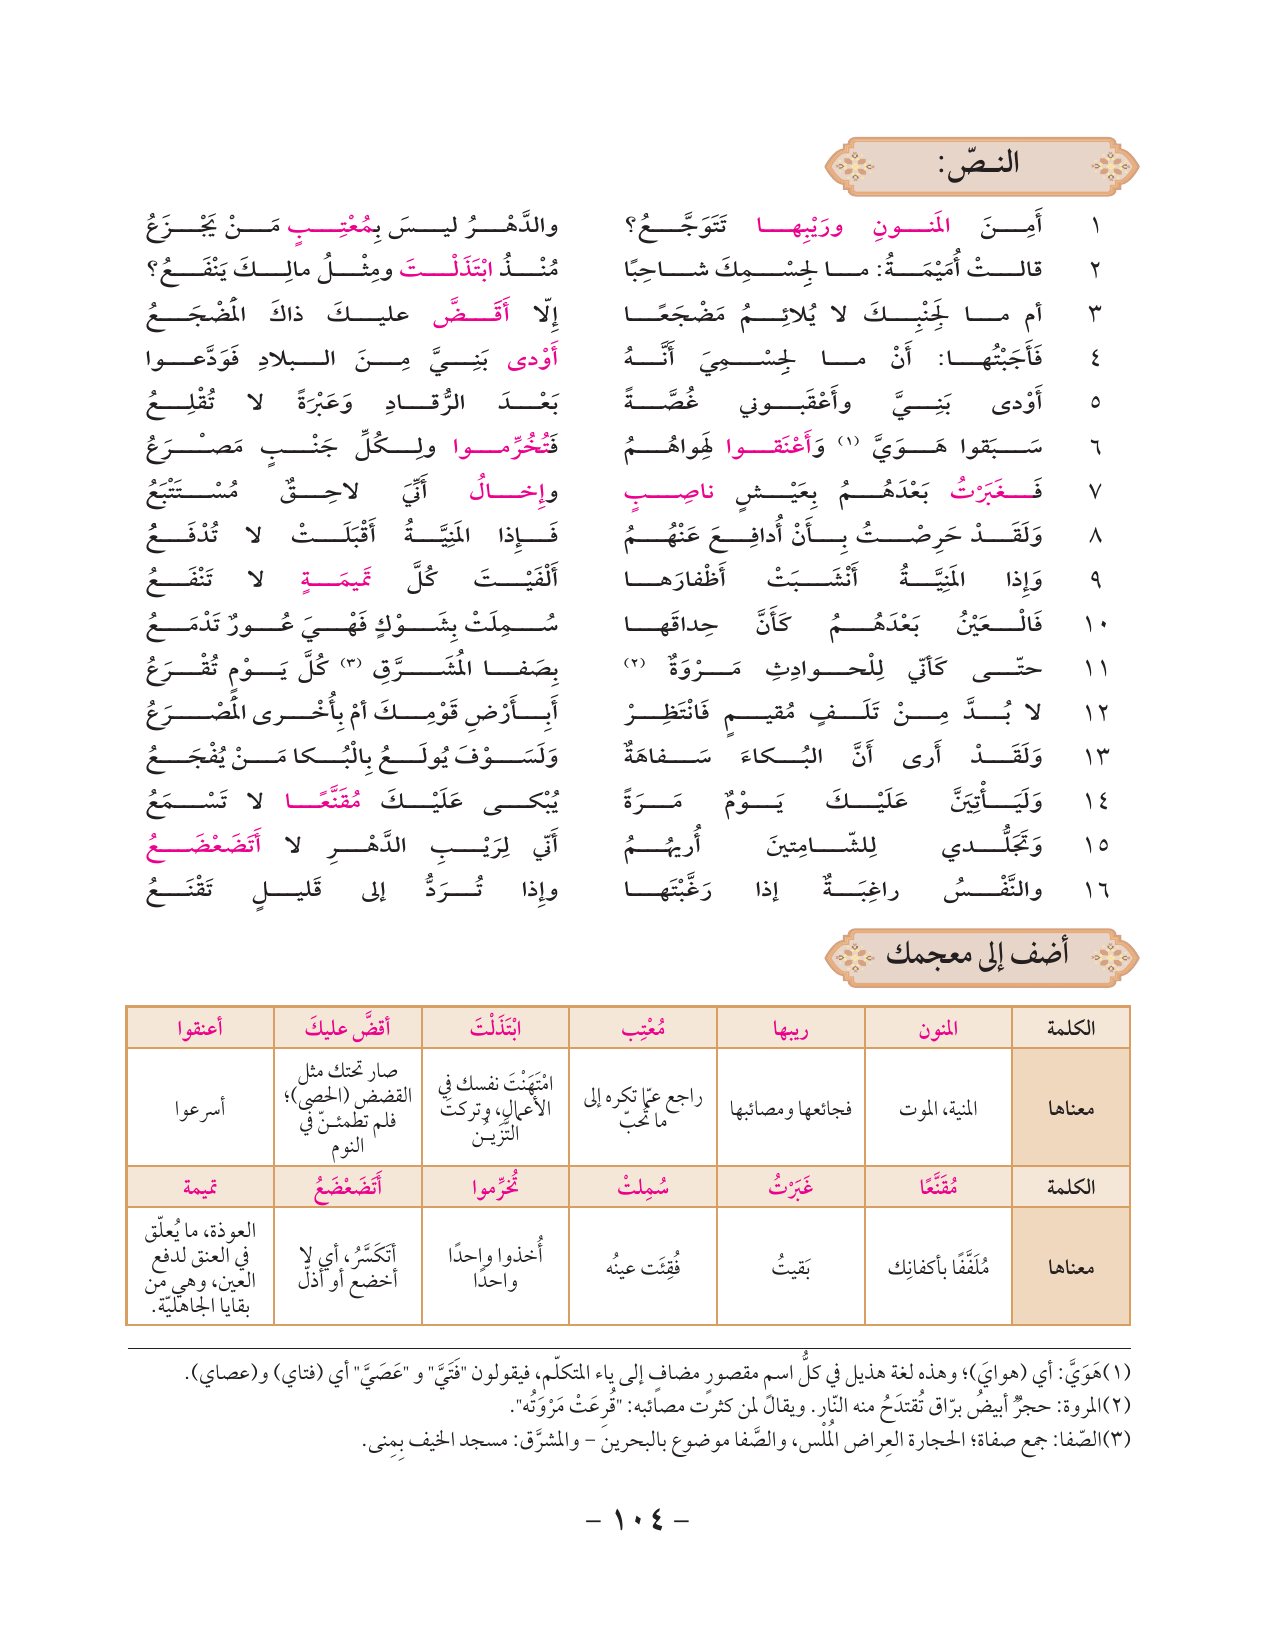 النـصّ:
١ أَمِـنَ المَنـونِ ورَيْبِهـا تَتَوَجَّـعُ؟ والدَّهْـرُ ليـسَ بِمُعْتِـبٍ مَـنْ يَجْـزَعُ
٢ قالـتْ أُمَيْمَـةُ: مـا لِجِسْـمِكَ شـاحِبًا مُنْـذُ ابْتَذَلْـتَ ومِثْـلُ مالِـكَ يَنْفَـعُ؟
٣ أم مـا لِجَنْبِـكَ لا يُلائِـمُ مَضْجَعًـا إِلّا أَقَـضَّ عليـكَ ذاكَ المَضْجَـعُ
٤ فَأَجَبْتُهـا: أَنْ مـا لِجِسْـمِيَ أَنَّـهُ أَوْدى بَنِـيَّ مِـنَ البـلادِ فَوَدَّعـوا
٥ أَوْدى بَنِـيَّ وأَعْقَبـوني غُصَّـةً بَعْـدَ الرُّقـادِ وَعَبْرَةً لا تُقْلِـعُ
٦ سَـبَقوا هَـوَيَّ (١) وَأَعْنَقـوا لِهَواهُـمُ فَتُخُرِّمـوا ولِـكُلِّ جَنْـبٍ مَصْـرَعُ
٧ فَـغَبَرْتُ بَعْدَهُـمُ بِعَيْـشٍ ناصِـبٍ وإِخـالُ أَنِّيَ لاحِـقٌ مُسْـتَتْبَعُ
٨ وَلَقَـدْ حَرِصْـتُ بِـأَنْ أُدافِـعَ عَنْهُـمُ فَـإِذا المَنِيَّـةُ أَقْبَلَـتْ لا تُدْفَـعُ
٩ وَإِذا المَنِيَّـةُ أَنْشَـبَتْ أَظْفارَهـا أَلْفَيْـتَ كُلَّ تَميمَـةٍ لا تَنْفَـعُ
١٠ فَالْـعَيْنُ بَعْدَهُـمُ كَأَنَّ حِداقَهـا سُـمِلَتْ بِشَـوْكٍ فَهْـيَ عُـورٌ تَدْمَـعُ
١١ حتّـى كَأنّي لِلْحـوادِثِ مَـرْوَةٌ (٢) بِصَفـا المُشَـرَّقِ (٣) كُلَّ يَـوْمٍ تُقْـرَعُ
١٢ لا بُـدَّ مِـنْ تَلَـفٍ مُقيـمٍ فَانْتَظِـرْ أَبِـأَرْضِ قَوْمِـكَ أمْ بِأُخْـرى المَصْـرَعُ
١٣ وَلَقَـدْ أَرى أَنَّ البُـكاءَ سَـفاهَةٌ وَلَسَـوْفَ يُولَـعُ بِالْبُـكا مَـنْ يُفْجَـعُ
١٤ وَلَيَـأْتِيَنَّ عَلَيْـكَ يَـوْمٌ مَـرَةً يُبْكـى عَلَيْـكَ مُقَنَّعًـا لا تَسْـمَعُ
١٥ وَتَجَلُّـدي لِلشّـامِتينَ أُريهُـمُ أَنّي لِرَيْـبِ الدَّهْـرِ لا أَتَضَعْضَـعُ
١٦ والنَّفْـسُ راغِبَـةٌ إذا رَغَّبْتَهـا وإِذا تُـرَدُّ إلى قَليـلٍ تَقْنَـعُ
أضف إلى معجمك
الكلمة المنون ريبها مُعْتِب ابْتَذَلْتَ أقضَّ عليكَ أعنقوا
معناها المنية، الموت فجائعها ومصائبها راجع عمّا تكره إلى ما تُحبّ امْتَهَنْتَ نفسك في الأعمال، وتركتَ التَّزيـُـن صار تحتك مثل القضض (الحصى)؛ فلم تطمئـنّ في النوم أسرعوا
الكلمة مُقَنَّعًا غَبَرْتُ سُمِلتْ تُخُرِّموا أَتَضَعْضَعُ تميمة
معناها مُلَفَّفًا بأكفانِك بَقيتُ فُقِئَت عينُه أُخذوا واحدًا واحدًا أتَكَسَّرُ، أي لا أخضع أو أذلّ العوذة، ما يُعلّق في العنق لدفع العين، وهي من بقايا الجاهليّة.
(١)هَوَيَّ: أي (هوايَ)؛ وهذه لغة هذيل في كلُّ اسم مقصورٍ مضافٍ إلى ياء المتكلّم، فيقولون "فَتَيَّ" و "عَصَيَّ" أي (فتاي) و(عصاي).
(٢)المروة: حجرٌ أبيضُ برّاق تُقتدَحُ منه النّار. ويقالُ لمن كثرت مصائبه: "قُرِعَتْ مَرْوَتُه".
(٣)الصّفا: جمع صفاة؛ الحجارة العِراض المُلْس، والصَّفا موضوع بالبحرينَ – والمشرَّق: مسجد الخيف بِمِنى.
– ١٠٤ –